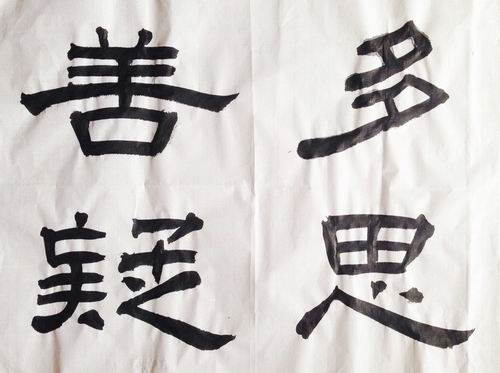 多思
善疑